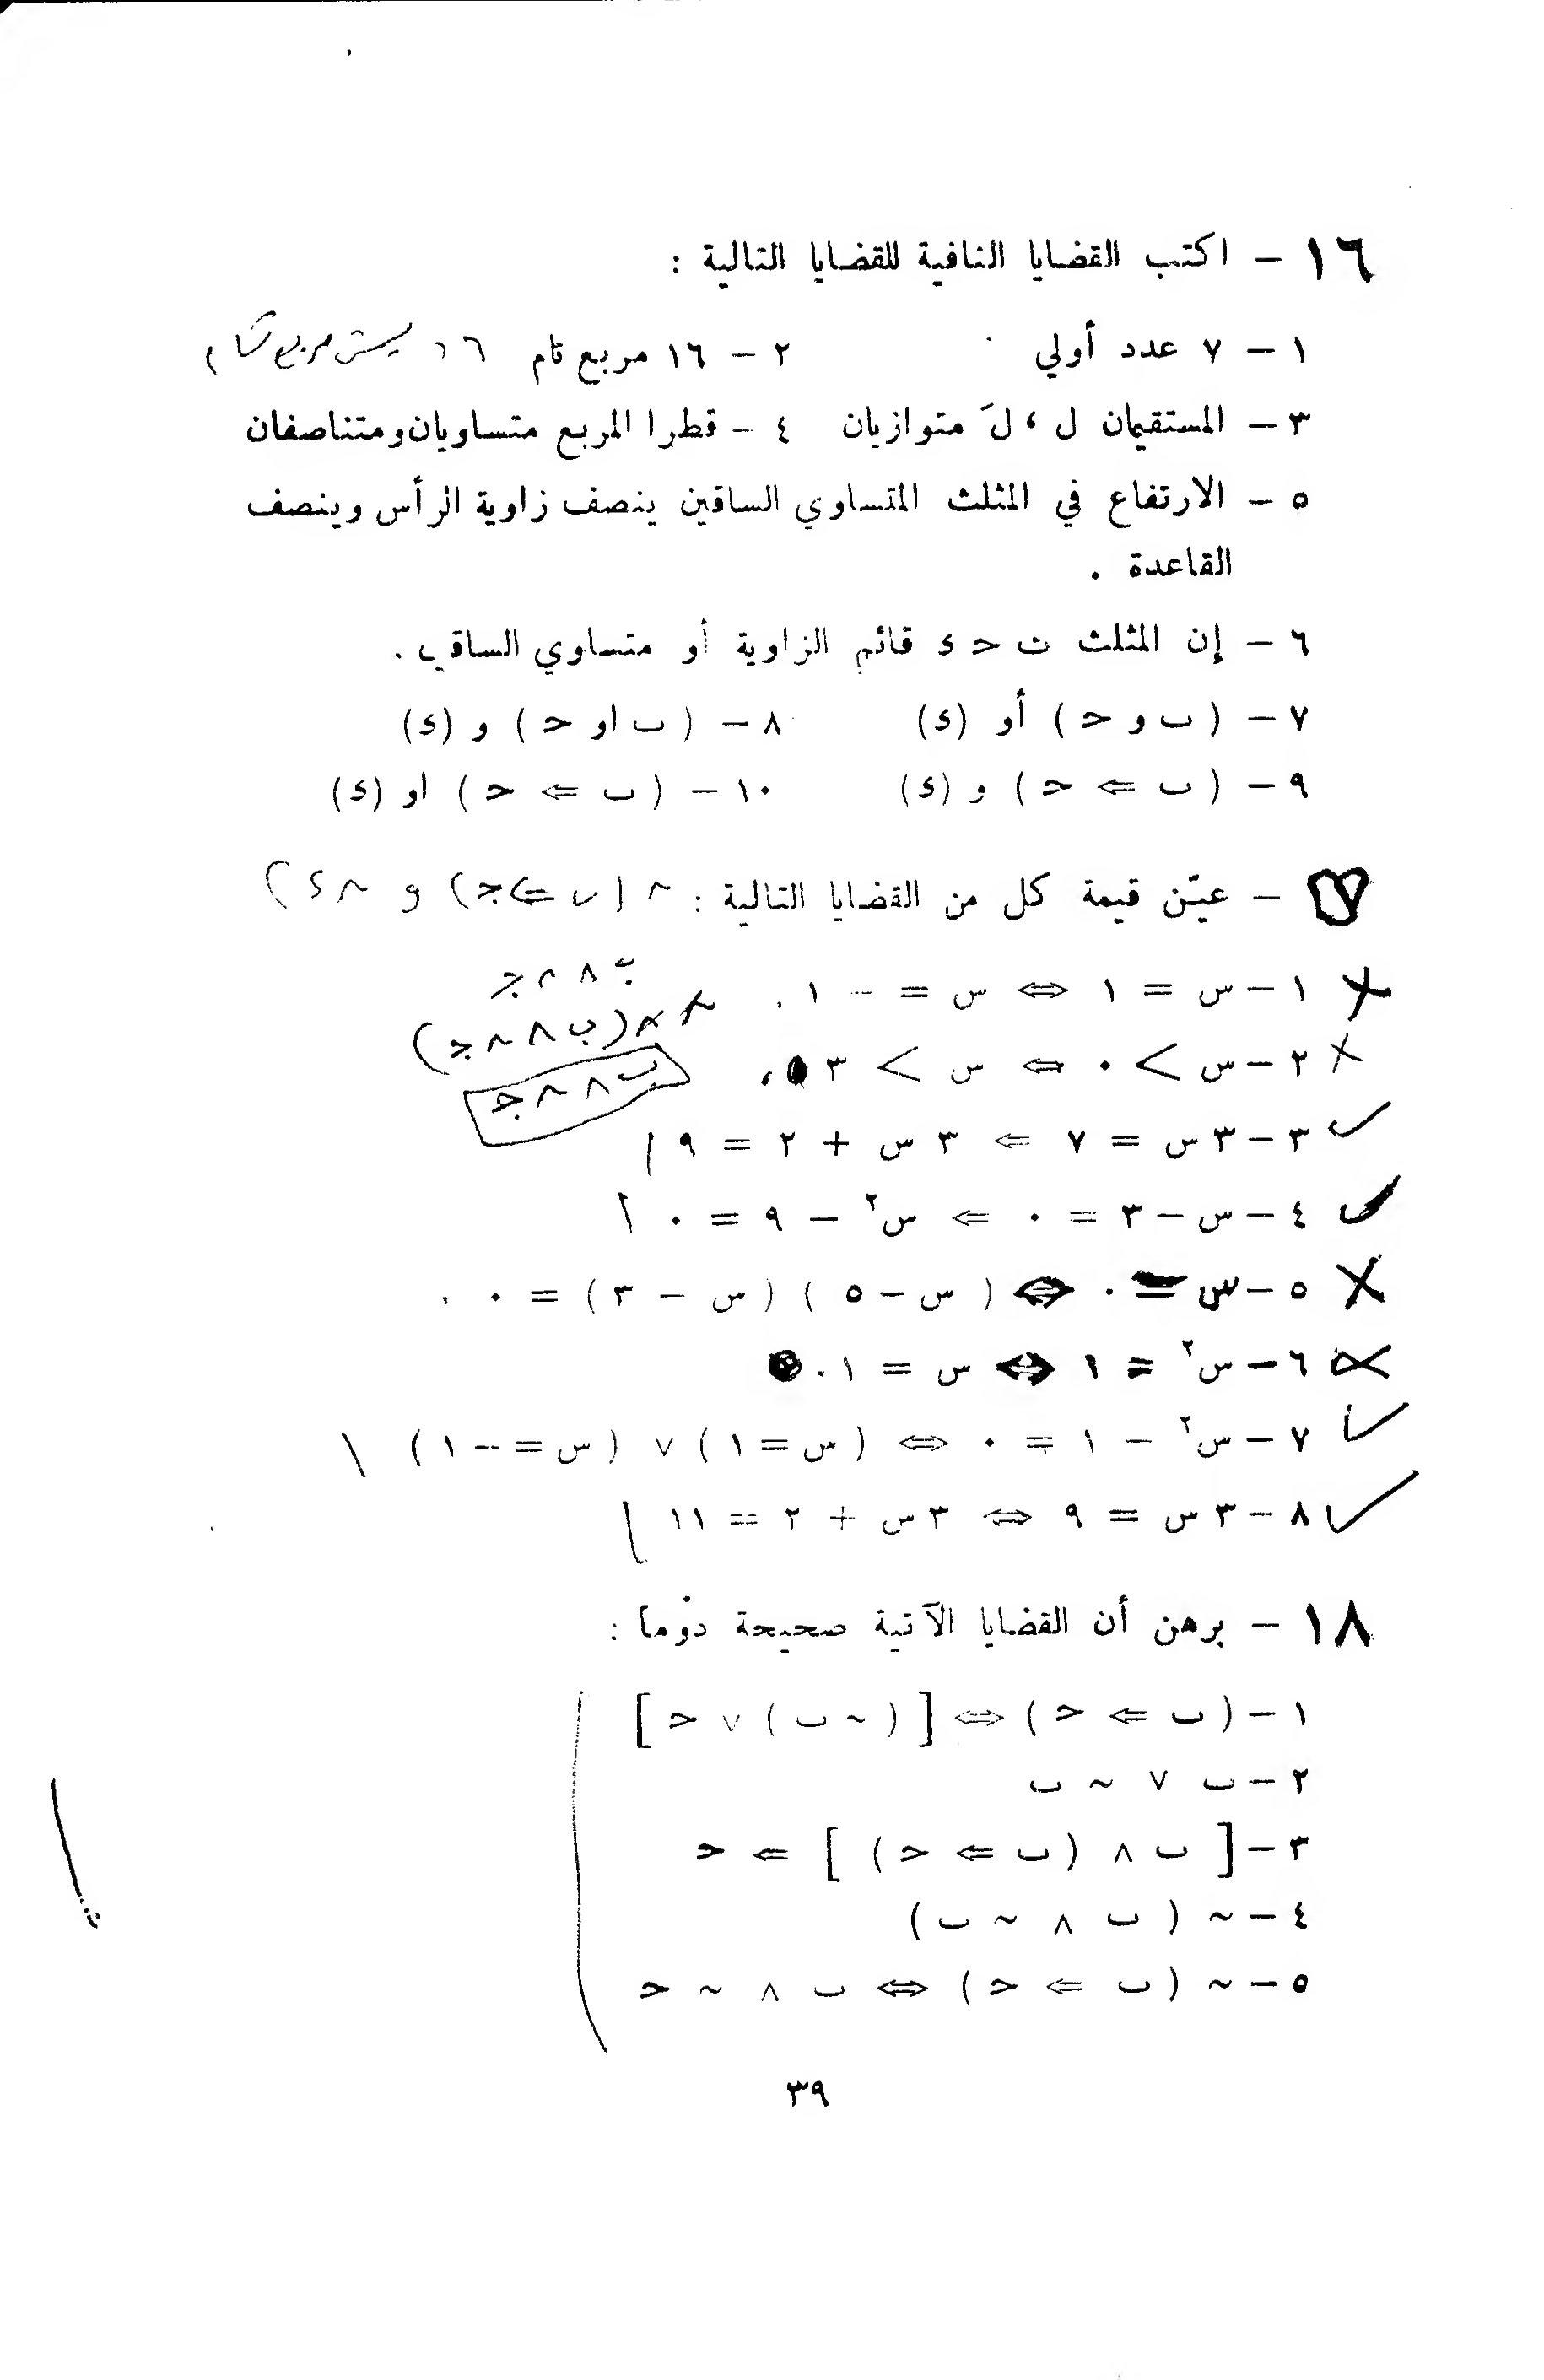 ١٦ – اكتب القضايا النافية للقضايا التالية :
١ – ٧ عدد أولي ٢ – ١٦ مربع تام ١٦ ليس مربع تام
٣ – المستقيمان ل ، لَ متوازيان ٤ – قطرا المربع متساويان ومتناصفان
٥ – الارتفاع في المثلث المتساوي الساقين ينصف زاوية الرأس وينصف
القاعدة .
٦ – إن المثلث ب ح ء قائم الزاوية أو متساوي الساقين .
٧ – ( ب و ح ) أو (ء) ٨ – ( ب او ح ) و (ء)
٩ – ( ب ⇐ ح ) و (ء) ١٠ – ( ب ⇐ ح ) او (ء)
١٧ – عيّن قيمة كل من القضايا التالية : ~ (ب ⇐ ج) و ~ ء)
ب ∧ ~ ج
١ – س = ١ ⇔ س = – ١ .
~ ~ (ب ∧ ~ ج)
٢ – س > ٠ ⇐ س > ٣
ب ∧ ~ ج
٣ – ٣ س = ٧ ⇐ ٣ س + ٢ = ٩
٤ – س – ٣ = ٠ ⇐ س٢ – ٩ = ٠
٥ – س = ٠ ⇔ ( س – ٥ ) ( س – ٣ ) = ٠ .
٦ – س٢ = ١ ⇔ س = ١ .
٧ – س٢ – ١ = ٠ ⇔ ( س = ١ ) ∨ ( س = – ١ )
٨ – ٣ س = ٩ ⇔ ٣ س + ٢ = ١١
١٨ – برهن أن القضايا الآتية صحيحة دوماً :
١ – ( ب ⇐ ح ) ⇔ [ ( ~ ب ) ∨ ح ]
٢ – ب ∨ ~ ب
٣ – [ ب ∧ ( ب ⇐ ح ) ] ⇐ ح
٤ – ~ ( ب ∧ ~ ب )
٥ – ~ ( ب ⇐ ح ) ⇔ ب ∧ ~ ح
٣٩